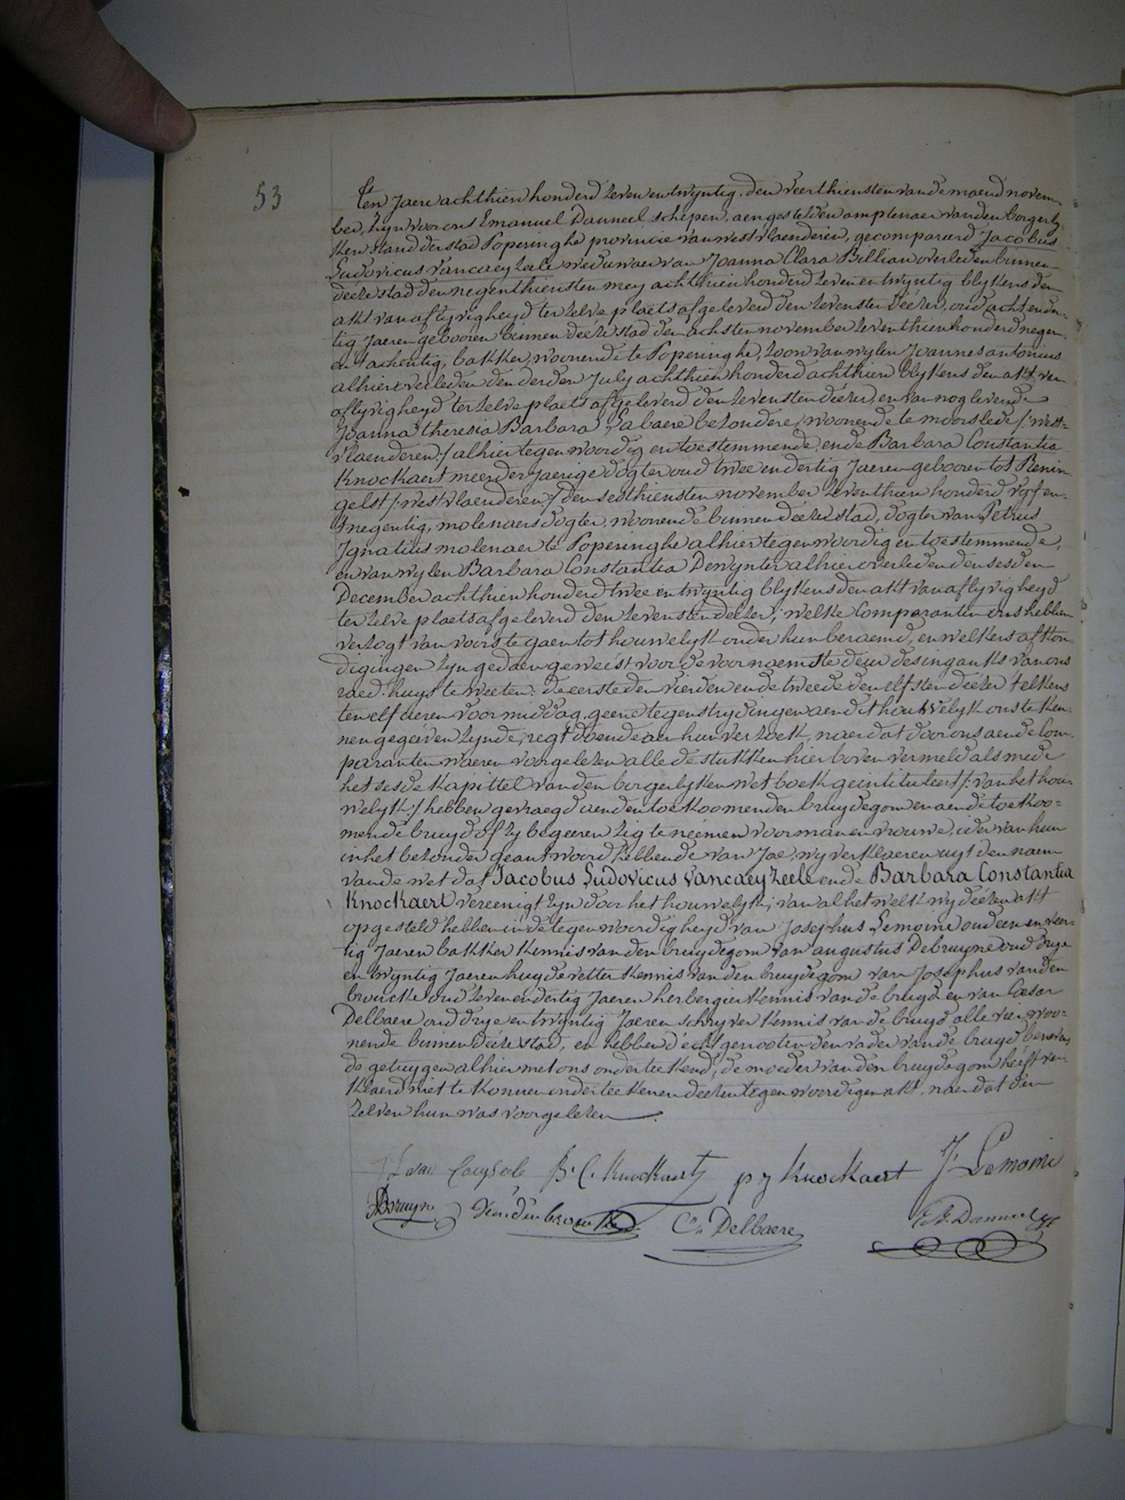 53
Ten Jaere achthien honderd zeven en twyntig, den veerthiensten van de maend novem-
ber, zyn voor ons Emanuel Danneel schepen, aengestelden amptenaer van den borgerly-
ken stand der stad Poperinghe provincie van westvlaenderen, gecompareerd Jacobus
Ludovicus Vancaeyzeele weduwaer van Joanna Clara Billiau overleden binnen
deeze stad den negenthiensten mey achthien honderd zeven en twyntig blykens den
akt van aflyvigheyd ter zelve plaets afgeleverd den zevensten deezer, oud acht en der-
tig Jaeren gebooren binnen deeze stad den achsten november zeventhien honderd negen
en tachentig, bakker, woonende te Poperinghe, zoon van wylen Joannes antonius
alhier overleden den derden July achthien honderd achthien blykens den akt van
aflyvigheyd ter zelve plaets afgeleverd den zevensten deezer en van nog levende
Joanna theresia Barbara Labaere bezondere, woonende te moorslede /: west-
vlaenderen :/ alhier tegenwoordig en toestemmende, ende Barbara Constantia
Knockaert meerderjaerige dogter oud twee en dertig Jaeren gebooren tot Renin-
gelst /: westvlaenderen :/ den sesthiensten november zeventhien honderd vyf en
negentig, molenaers dogter, woonende binnen deeze stad, dogter van Petrus
Ignatius molenaer te Poperinghe alhier tegenwoordig en toestemmende,
en van wylen Barbara Constantia Dewynter alhier overleden den sesden
December achthien honderd twee en twyntig blykens den akt van aflyvigheyd
ter zelve plaets afgeleverd den zevensten deezer; welke Comparanten ons hebben
verzogt van voorts te gaen tot houwelyk onder hun beraemd, en welkers afkon-
digingen zyn gedaen geweest voor de voornaemste deur des ingank's van ons
raed-huys te weeten: de eerste den vierden en de tweede den elfsten deezer telkens
ten elf ueren voormiddag, geene tegenstrydingen aen dit houwelyk ons te ken-
nen gegeven zynde, regt doende aen hun verzoek, naer dat door ons aen de Com-
paranten waeren voorgelezen alle de stukken hier boven vermeld als mede
het sesde kapittel van den borgerlyken wetboek geintituleert /: van het hou-
welyk :/ hebben gevraegd aen den toekoomenden bruydegom en aen de toekoo-
mende bruyd of zy begeeren zig te neemen voor man en vrouwe, ider van hun
in het bezonder geantwoord hebbende van Jae, wy verklaeren uyt den naem
van de wet dat Jacobus Ludovicus Vancaeyzeele ende Barbara Constantia
Knockaert vereenigt zyn door het houwelyk; van al het welk wy deezen akt
opgesteld hebben in de tegenwoordigheyd van Josephus Lemoine oud een en veer-
tig Jaeren bakker kennis van den bruydegom van augustus Debruyne oud drye
en twyntig Jaeren huydevetter kennis van den bruydegom van Josephus vanden
broucke oud zeven en dertig Jaeren herbergier kennis van de bruyd en van Cæsar
Delbaere oud drye en twyntig Jaeren schryver kennis van de bruyd alle vier woo-
nende binnen deeze stad, en hebben d'echtgenooten den vader van de bruyd benevens
de getuygen alhier met ons onderteekend, de moeder van den bruydegom heeft ver-
klaerd niet te konnen onderteekenen deezen tegenwoordigen akt, naer dat den
zelven hun was voorgelezen
B: C. Knockaert p j Knockaert J Lemoine
DBruyne Vandenbroucke Cs Delbaere E. Danneel